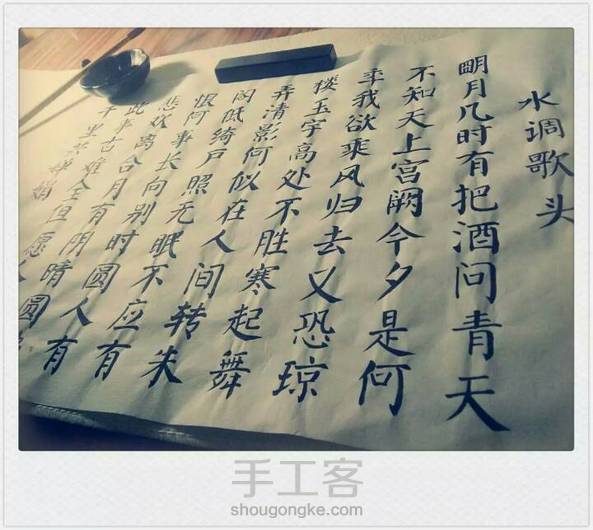 水调歌头
朙月几时有把酒问青天
不知天上宫阙今夕是何
秊我欲乘风归去又恐琼
楼玉宇高处不胜寒起舞
弄清影何似在人间转朱
阁低绮户照无眠不应有
恨何事长向别时圆人有
悲欢离合月有阴晴圆
此事古难全但愿人
千里共婵娟
手工客
shougongke.com